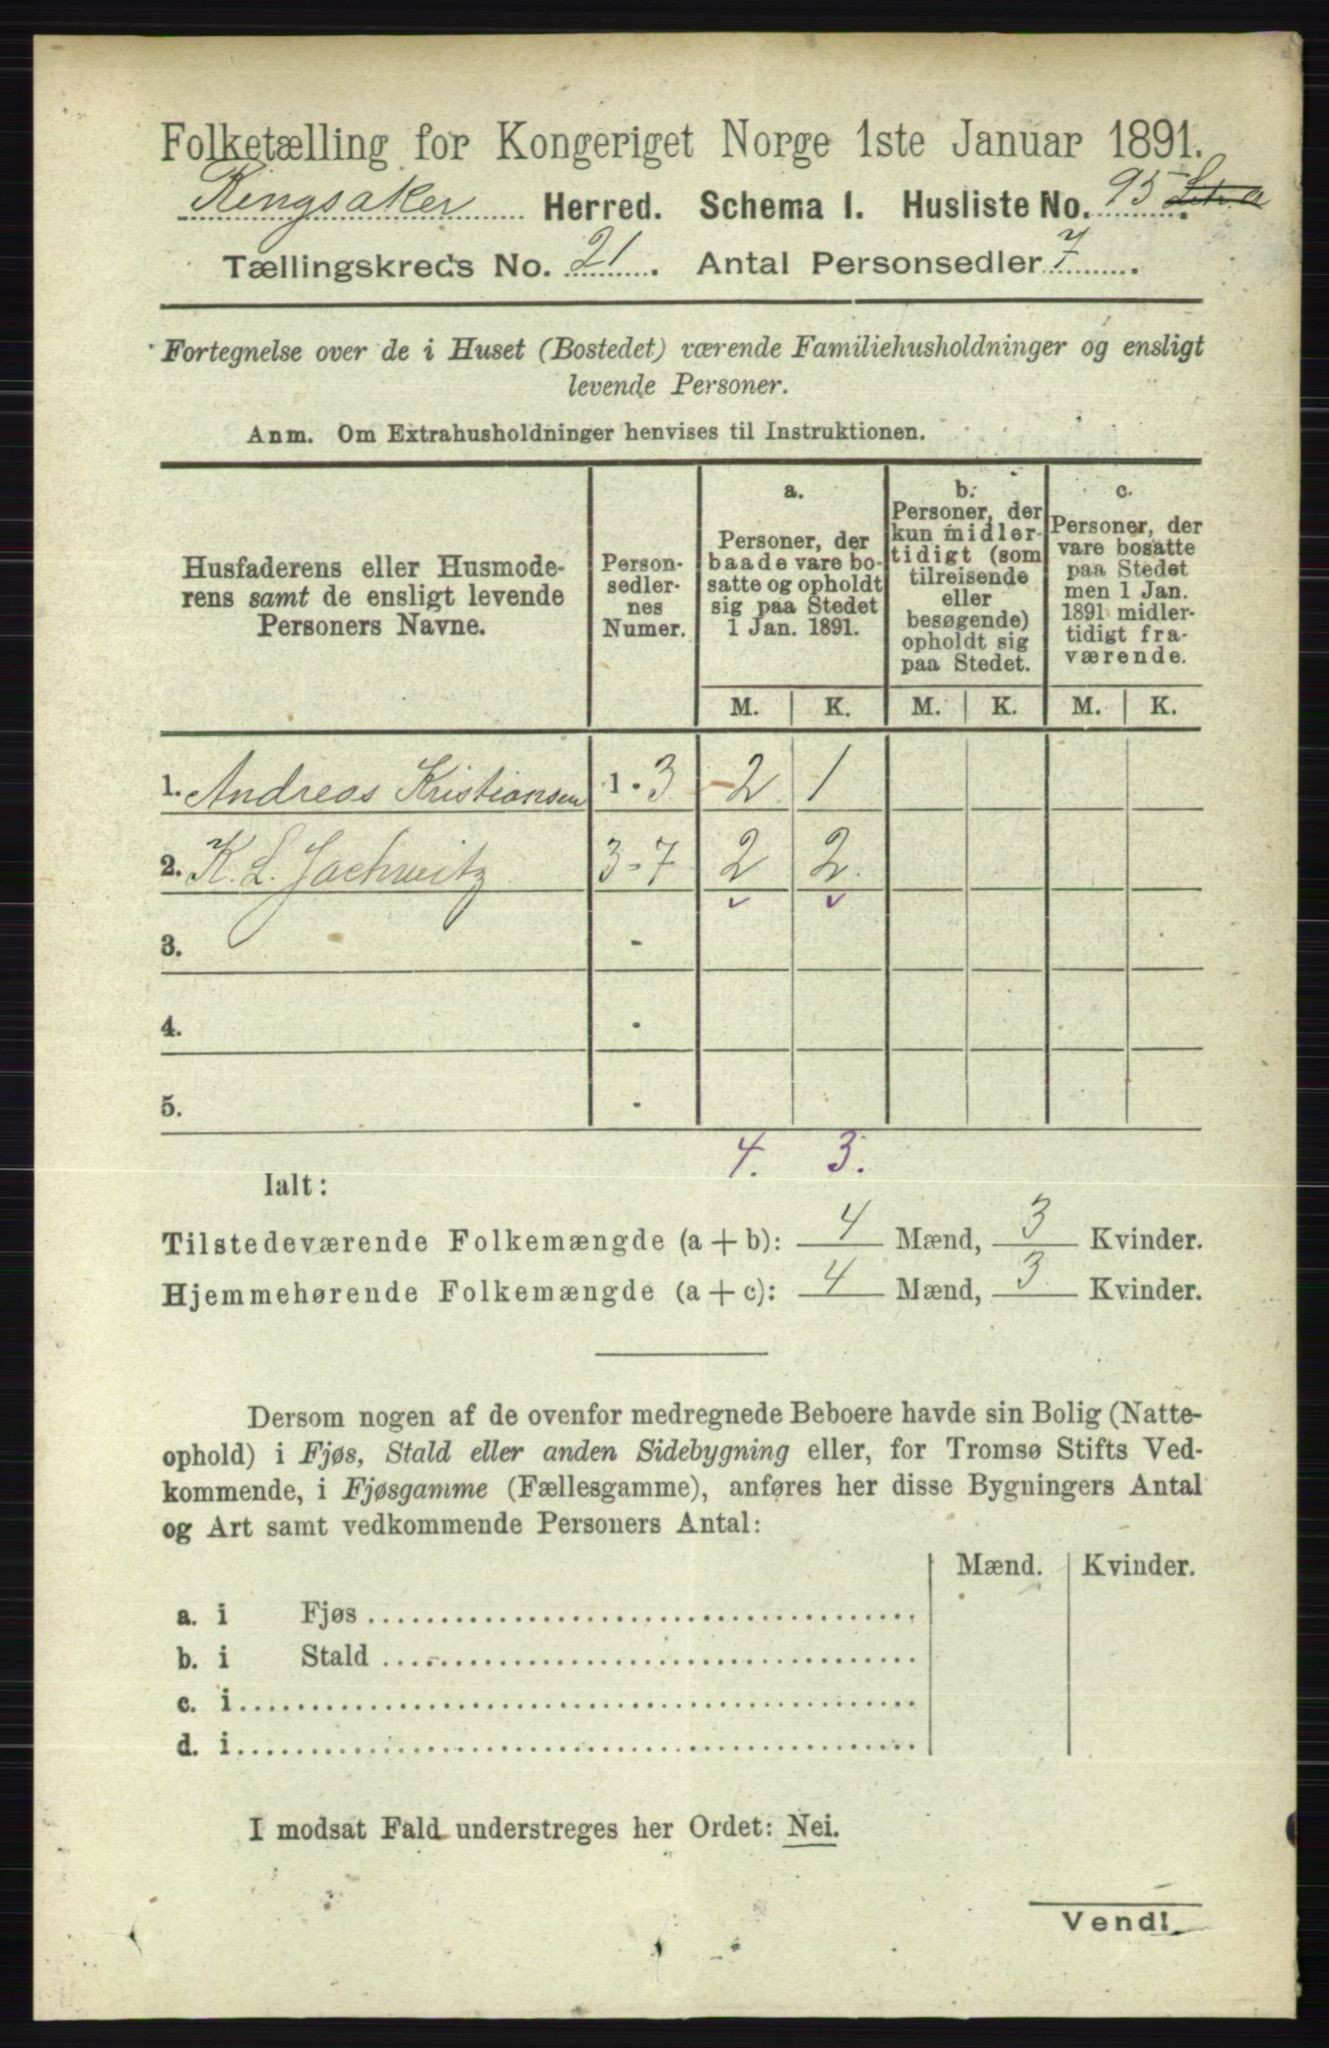 Folketælling for Kongeriget Norge 1ste Januar 1891.
Ringsaker Herred. Schema 1. Husliste No. 95 Litr a
Tællingskreds No. 21. Antal Personsedler 7.
Fortegnelse over de i Huset (Bostedet) værende Familiehusholdninger og ensligt
levende Personer.
Anm. Om Extrahusholdninger henvises til Instruktionen.
Husfaderens eller Husmode-
rens samt de ensligt levende
Personers Navne.
Person-
sedler-
nes
Numer.
a.
Personer, der
baade vare bo-
satte og opholdt
sig paa Stedet
1 Jan. 1891.
b.
Personer, der
kun midler-
tidigt (som
tilreisende
eller
besøgende)
opholdt sig
paa Stedet.
c.
Personer, der
vare bosatte
paa Stedet
men 1 Jan.
1891 midler-
tidigt fra-
værende.
M. K. M. K. M. K.
1. Andreas Kristiansen 1 - 3 2 1
2. K. L. Jachwitz 3 - 7 2 2
3. -
4. -
5. -
4. 3.
Ialt:
Tilstedeværende Folkemængde (a + b): 4 Mænd, 3 Kvinder.
Hjemmehørende Folkemængde (a + c): 4 Mænd, 3 Kvinder.
Dersom nogen af de ovenfor medregnede Beboere havde sin Bolig (Natte-
ophold) i Fjøs, Stald eller anden Sidebygning eller, for Tromsø Stifts Ved-
kommende, i Fjøsgamme (Fællesgamme), anføres her disse Bygningers Antal
og Art samt vedkommende Personers Antal:
Mænd. Kvinder.
a. i Fjøs
b. i Stald
c. i
d. i
I modsat Fald understreges her Ordet: Nei.
Vend!